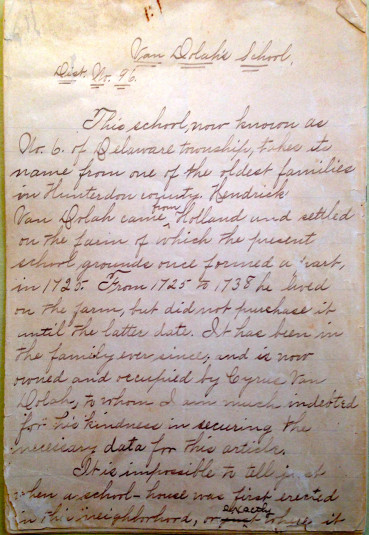 Van Dolah's School,
Dist. No. 96.
This school, now known as
No. 6. of Delaware township, takes its
name from one of the oldest families
in Hunterdon county. Hendrick
Van Dolah came from Holland and settled
on the farm of which the present
school grounds once formed a part,
in 1725. From 1725 to 1738 he lived
on the farm, but did not purchase it
until the latter date. It has been in
the family ever since, and is now
owned and occupied by Cyrus Van
Dolah, to whom I am much indebted
for his kindness in securing the
necessary data for this article.
It is impossible to tell just
when a school-house was first erected
in this neighborhood, or exactly where it